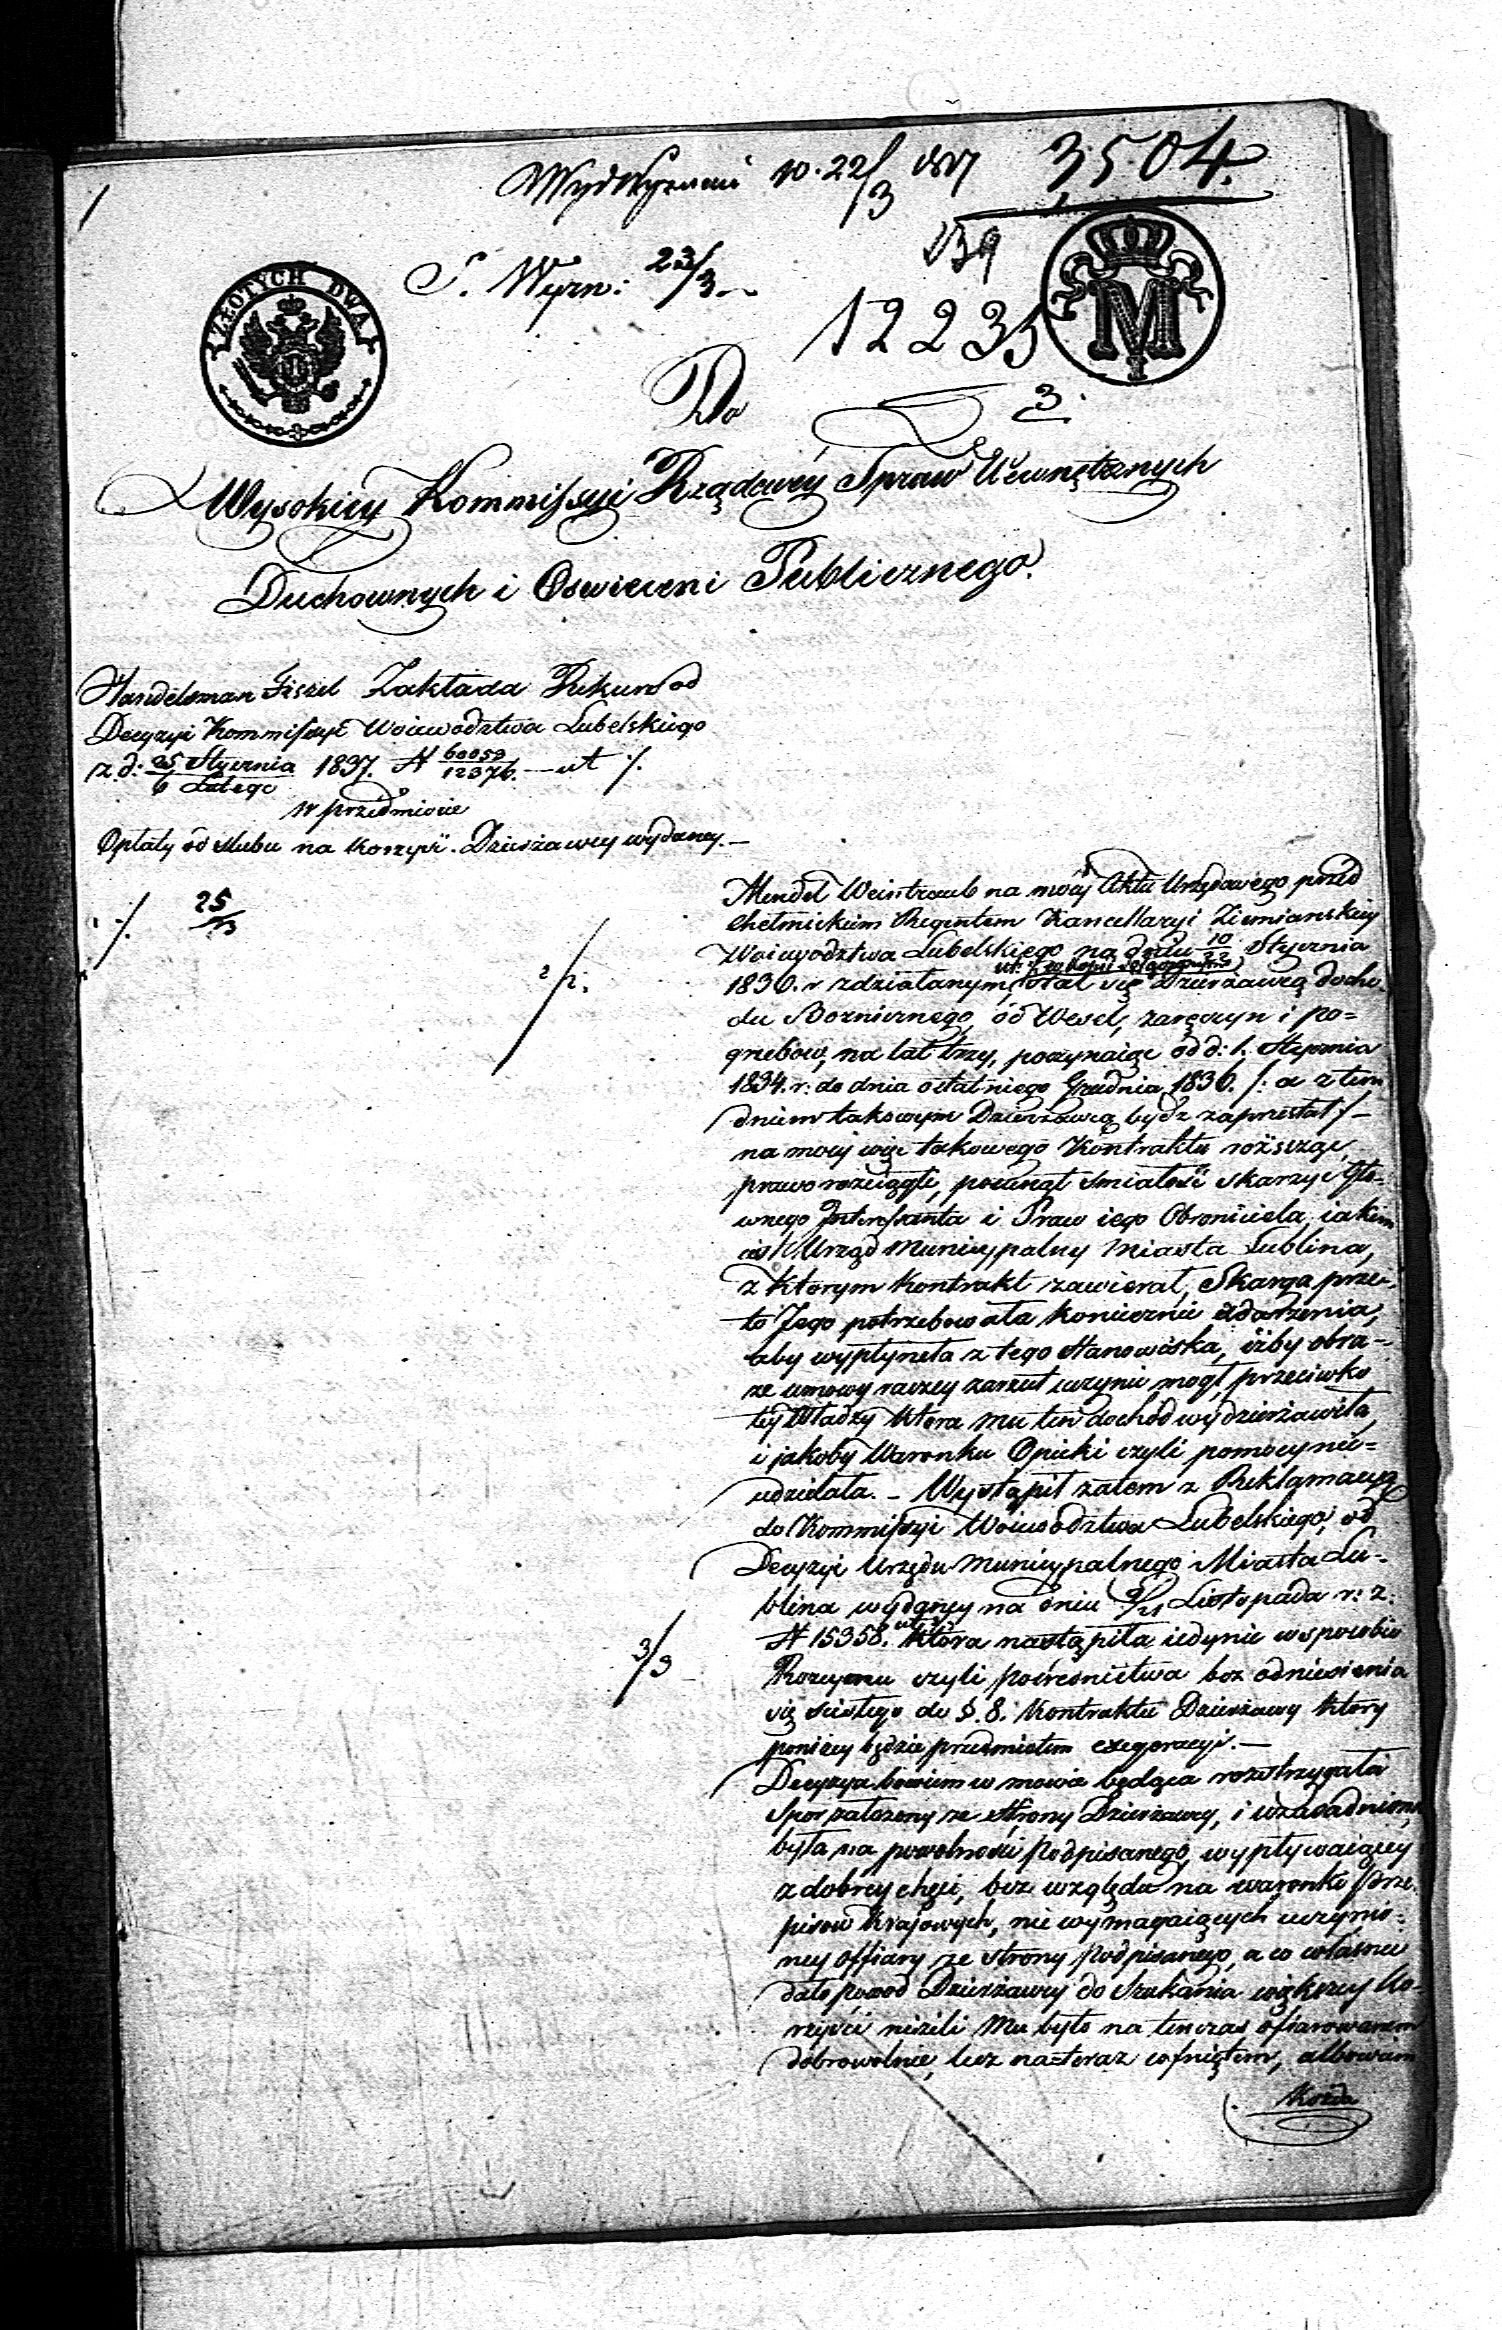 Wyd Wyznań 10. 22/3 1837 3504.
S. Wyzn: 23/3
139
ZŁOTYCH DWA
12235
M
3.
Do
Wysokiey Kommissyi Rządowéy Spraw Wewnętrznych
Duchownych i Oswieceni Publicznego.
Handelsman Giszel Zakłada Rekurs od
Decyzyi Kommissyi Woiewodztwa Lubelskiego
z. d: 25 Stycznia / 6 Lutego 1837. N 60059/12376. — ut /.
w przedmiocie
Opłaty od slubu na korzyść Dzierżawcy wydaney. —
/. 25/3
Mendel Weintraub na mocy Aktu Urzędowego przed
Chełmickim Regentem Kancellaryi Ziemianskiey
Woiewodztwa Lubelskiego na dniu 10/22 Stycznia
1836. r zdziałanym, stał się Dzierżawcą docho
2/2.
du Boznicznego, od Wesel, zaręczyn i po=
grzebow, na lat trzy, poczynaiąc od d: 1. Stycznia
1834. r: do dnia ostatniego Grudnia 1836. /: a z tem
dniem takowym Dzierżawcą bydz zaprzestał /-
na mocy więc takowego Kontraktu rosszcząc
prawo rozciągłe, powziął smiałość skarzyc Głó-
wnego Interssanta i Praw iego Obroniciela, iakim
iest Urząd Municypalny Miasta Lublina,
z ktorym Kontrakt zawierał, Skarga prze-
to Jego potrzebowała koniecznie zdarzenia,
aby wypłyneła z tego stanowiska, iżby obra-
ze umowy raczey zarzut uczynic mogł, przeciwko
tey Władzy ktora mu ten dochód wydzierżawiła,
i jakoby Warunku Opieki czyli pomocy nie=
udzielała. - Wystąpił zatem z Reklamacyą
do Kommissyi Woiewodztwa Lubelskiego, od
Decyzyi Urzędu Municypalnego Miasta Lu-
blina wydaney na dniu 9/21 Listopada r: z:
N 15358. ktora nastąpiła iedynie w sposobie
3/3
Rozejmu czyli posrednictwa bez odniesienia
się scisłego do §. 8. Kontraktu Dzierżawy ktory
poniżey będzie przedmiotem exegeracyi. —
Decyzya bowiem w mowie będąca rozstrzygała
Spor założony ze strony Dzierżawcy, i uzasadnioną
była na powolnosci Podpisanego, wypływaiącey
z dobrey chęci, bez względu na warunki Prze-
pisow Kraiowych, nie wymagaiących uczynio-
ney offiary ze strony podpisanego, a co własnie
dało powod Dzierżawcy do Szukania większey ko-
rzysci nizeli Mu było na tenczas ofiarowanem
dobrowolnie, lecz na=teraz cofniętem, albowiem
Każda